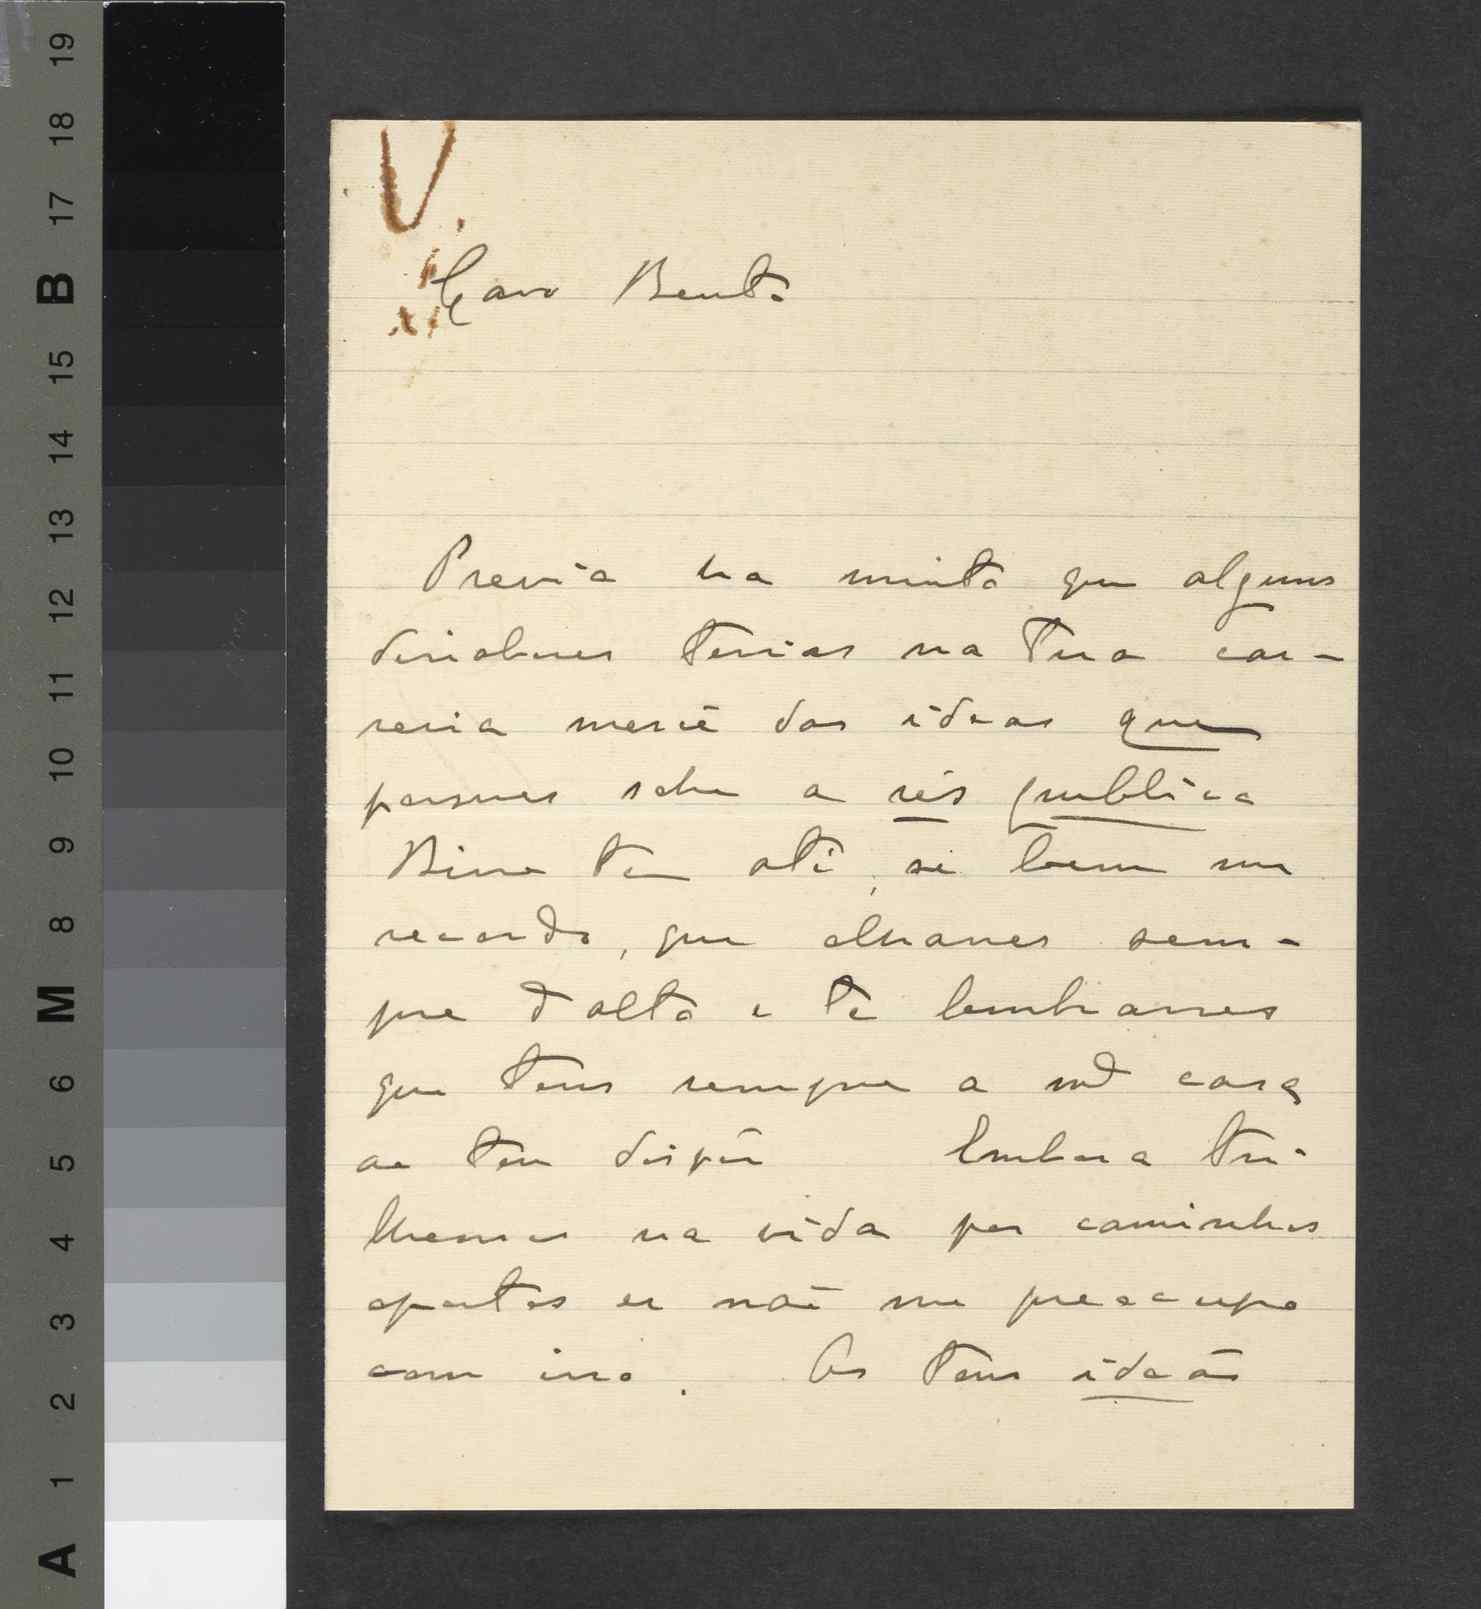 19
18
17
B
15
14
13
12
11
10
9
8
M
6
5
4
3
2
1
A
Caro Bento
Previa ha muito que alguns
dissabores terias na tua car-
reira mercê das idéas que
possues sobre a res publica
Disse te até, si bem me
recordo, que olhasses sem-
pre d'alto e te lembrasses
que tens sempre a m.ª casa
ao teu dispôr Embora tri-
lhemos na vida por caminhos
opostos eu não me preoccupo
com isso. As tuas idéas